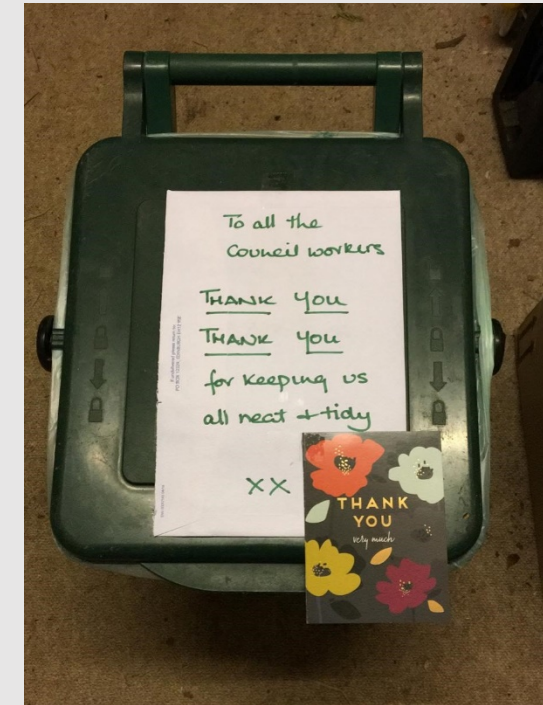 To all the
Council workers
THANK YOU
THANK YOU
for keeping us
all neat + tidy
XX
THANK
YOU
very much